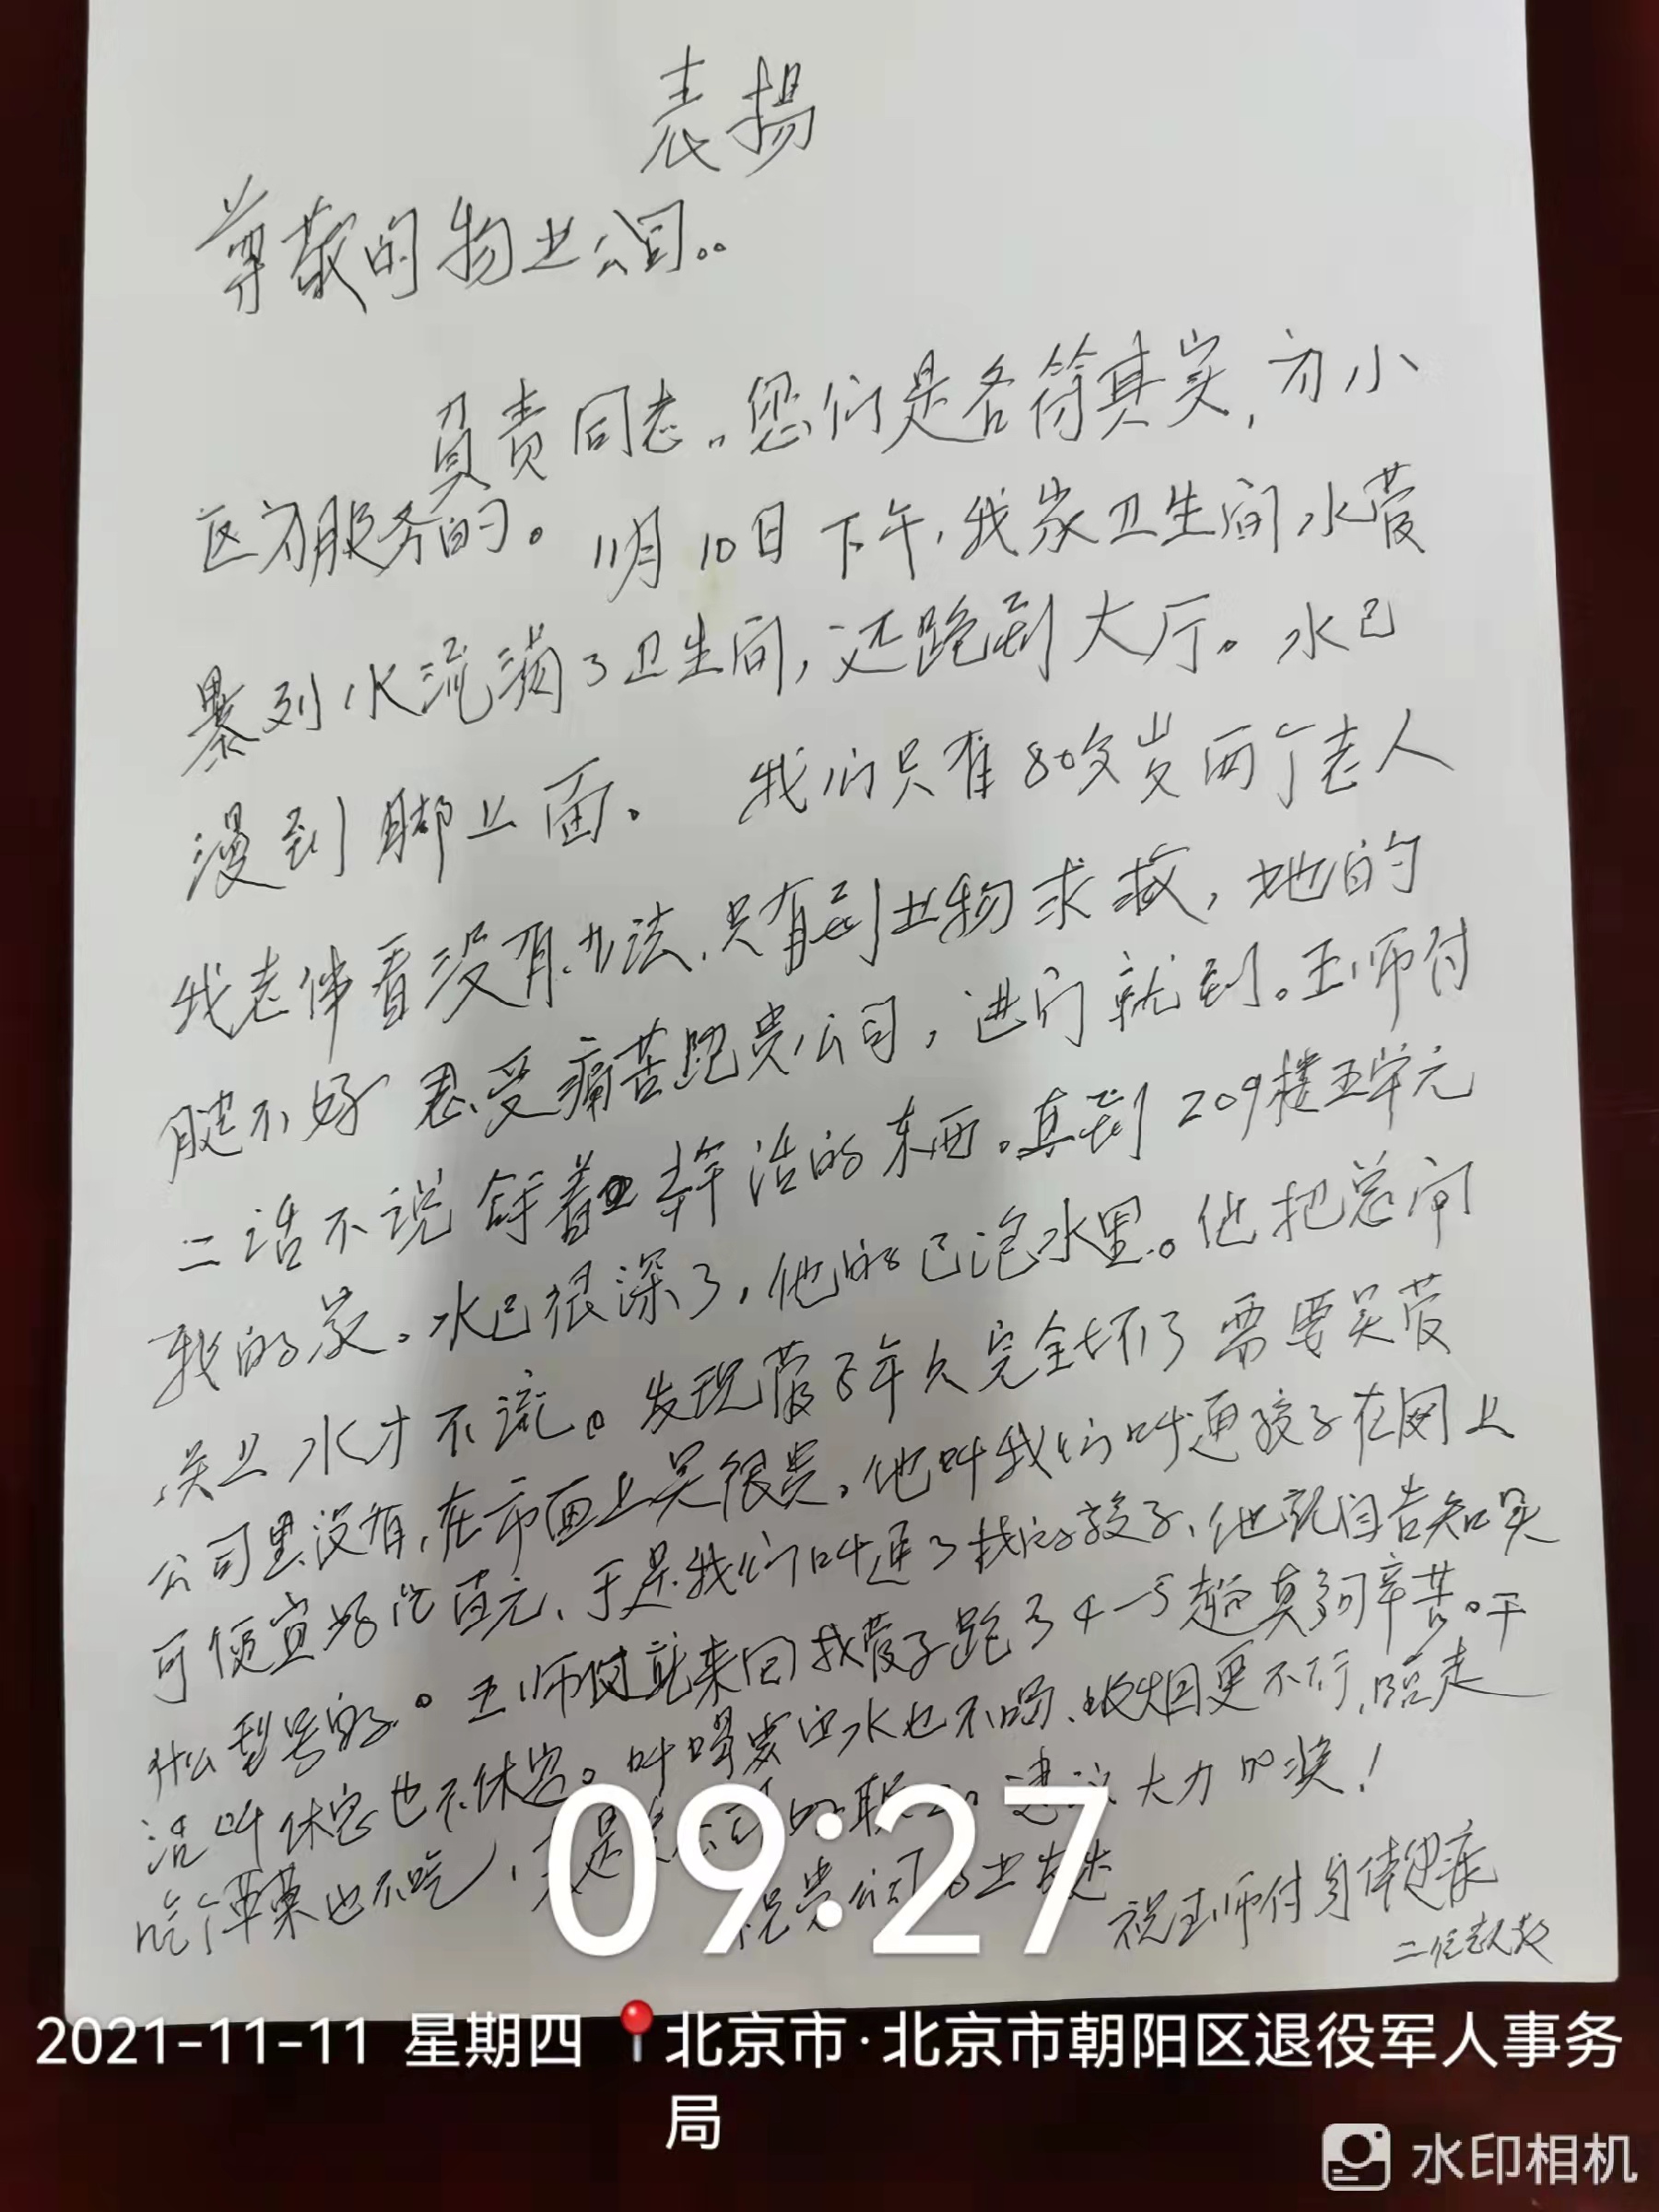 表揚
尊敬的物业公司。。
負责同志。您们是名符其实,为小
区为服务的。11月10日下午,我家卫生间水管
暴列水流满了卫生间,还跑到大厅。水已
漫到脚上面。我们只有80多岁两个老人
我老伴看没有办法,只有到业物求救,她的
腿不好忍受痛苦跑贵公司,进门就到。王师付
二话不说拿着幹活的东西。直到209楼五单元
我的家。水已很深了,他的已泡水里。他把总闸
关上水才不流。发现管子年久完全坏了需要买管
公司里没有,在市面上买很贵。他叫我们叫通孩子在网上
可便宜好几百元、于是我们叫通了我的孩子、他就问告知买
什么型号的。王师付就来回找管子跑了4一5趟真的辛苦。干
活叫休息也不休息。叫喝口水也不喝、吸烟更不行,临走
吃个苹菓也不吃,是的职工。建议大力加奖!
祝贵公司发达
祝王师付身体健康
二位老人敬
09:27
2021-11-11 星期四 北京市·北京市朝阳区退役军人事务
局
水印相机